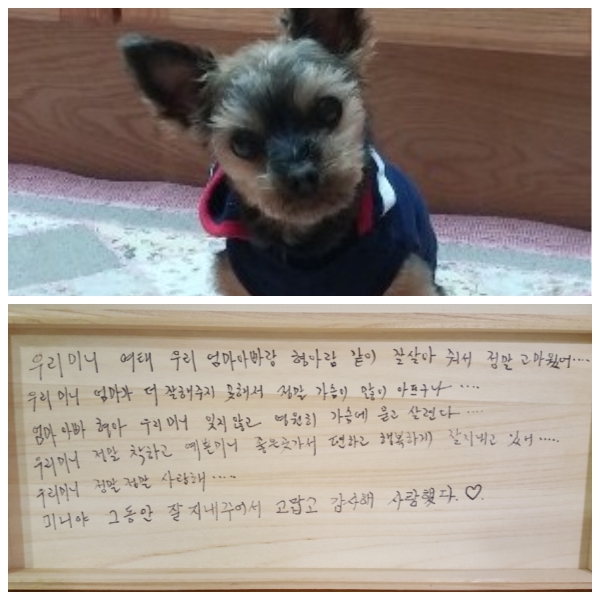 우리미니 여태 우리 엄마아빠랑 형아랑 같이 잘살아 줘서 정말 고마웠어....
우리미니 엄마가 더 잘해주지 못해서 정말 가슴이 많이 아프구나 ....
엄마 아빠 형아 우리미니 잊지않고 영원히 가슴에 묻고 살련다 ....
우리미니 정말 착하고 예쁜미니 좋은곳가서 편하고 행복하게 잘지내고 있어.....
우리미니 정말정말 사랑해 ....
미니야 그동안 잘 지내주어서 고맙고 감사해 사랑했다.♡.